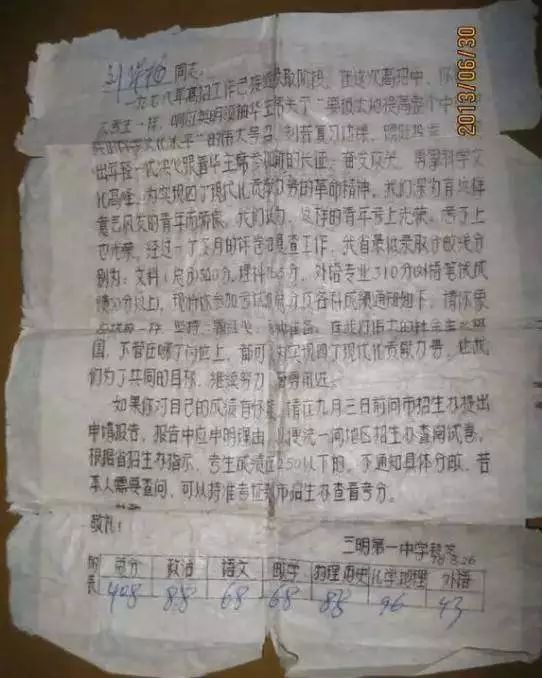 同志:
一九七八年高招工作已发展到录取阶段。在这次高招中,你
人考生一样,响应英明领袖华主席关于"极大地提高整个中
族的科学文化水平"的伟大号召,刻苦复习功课,踊跃投
出年轻一代决心跟着华主席参加新的长征,奋发
化高峰,为实现四个现代化贡献力量的革命精神。我们深为有这样
意气风发的青年而骄傲。我们认为,这样的青年考上光荣,考不上
也光荣。经过一个多月的评卷和复查工作,我省最低录取分数线分
别为:文科(总分)300分,理科 分,外语专业310分(外语笔试成
绩50分以上)。现将你参加考试的总分及各科成绩通知如下。请你象
国,不管在哪个岗位上,都可为实现四个现代化贡献力量,让我
们为了共同的目标,继续努力,奋勇前进。
如果你对自己的成绩有怀疑,请在九月三日前向市招生办提出
申请报告,报告中应申明理由,以便统一向地区招生办查阅试卷。
根据省招生办指示,考生成绩在250以下的,不通知具体分数,若
本人需要查问,可以持准考证到市招生办查看考分。
敬礼!
三明第一中学
78.8.26
总分 政治 语文 数学 物理 历史 化学 地理 外语
408 88 68 68 88 96 43
2013/06/30